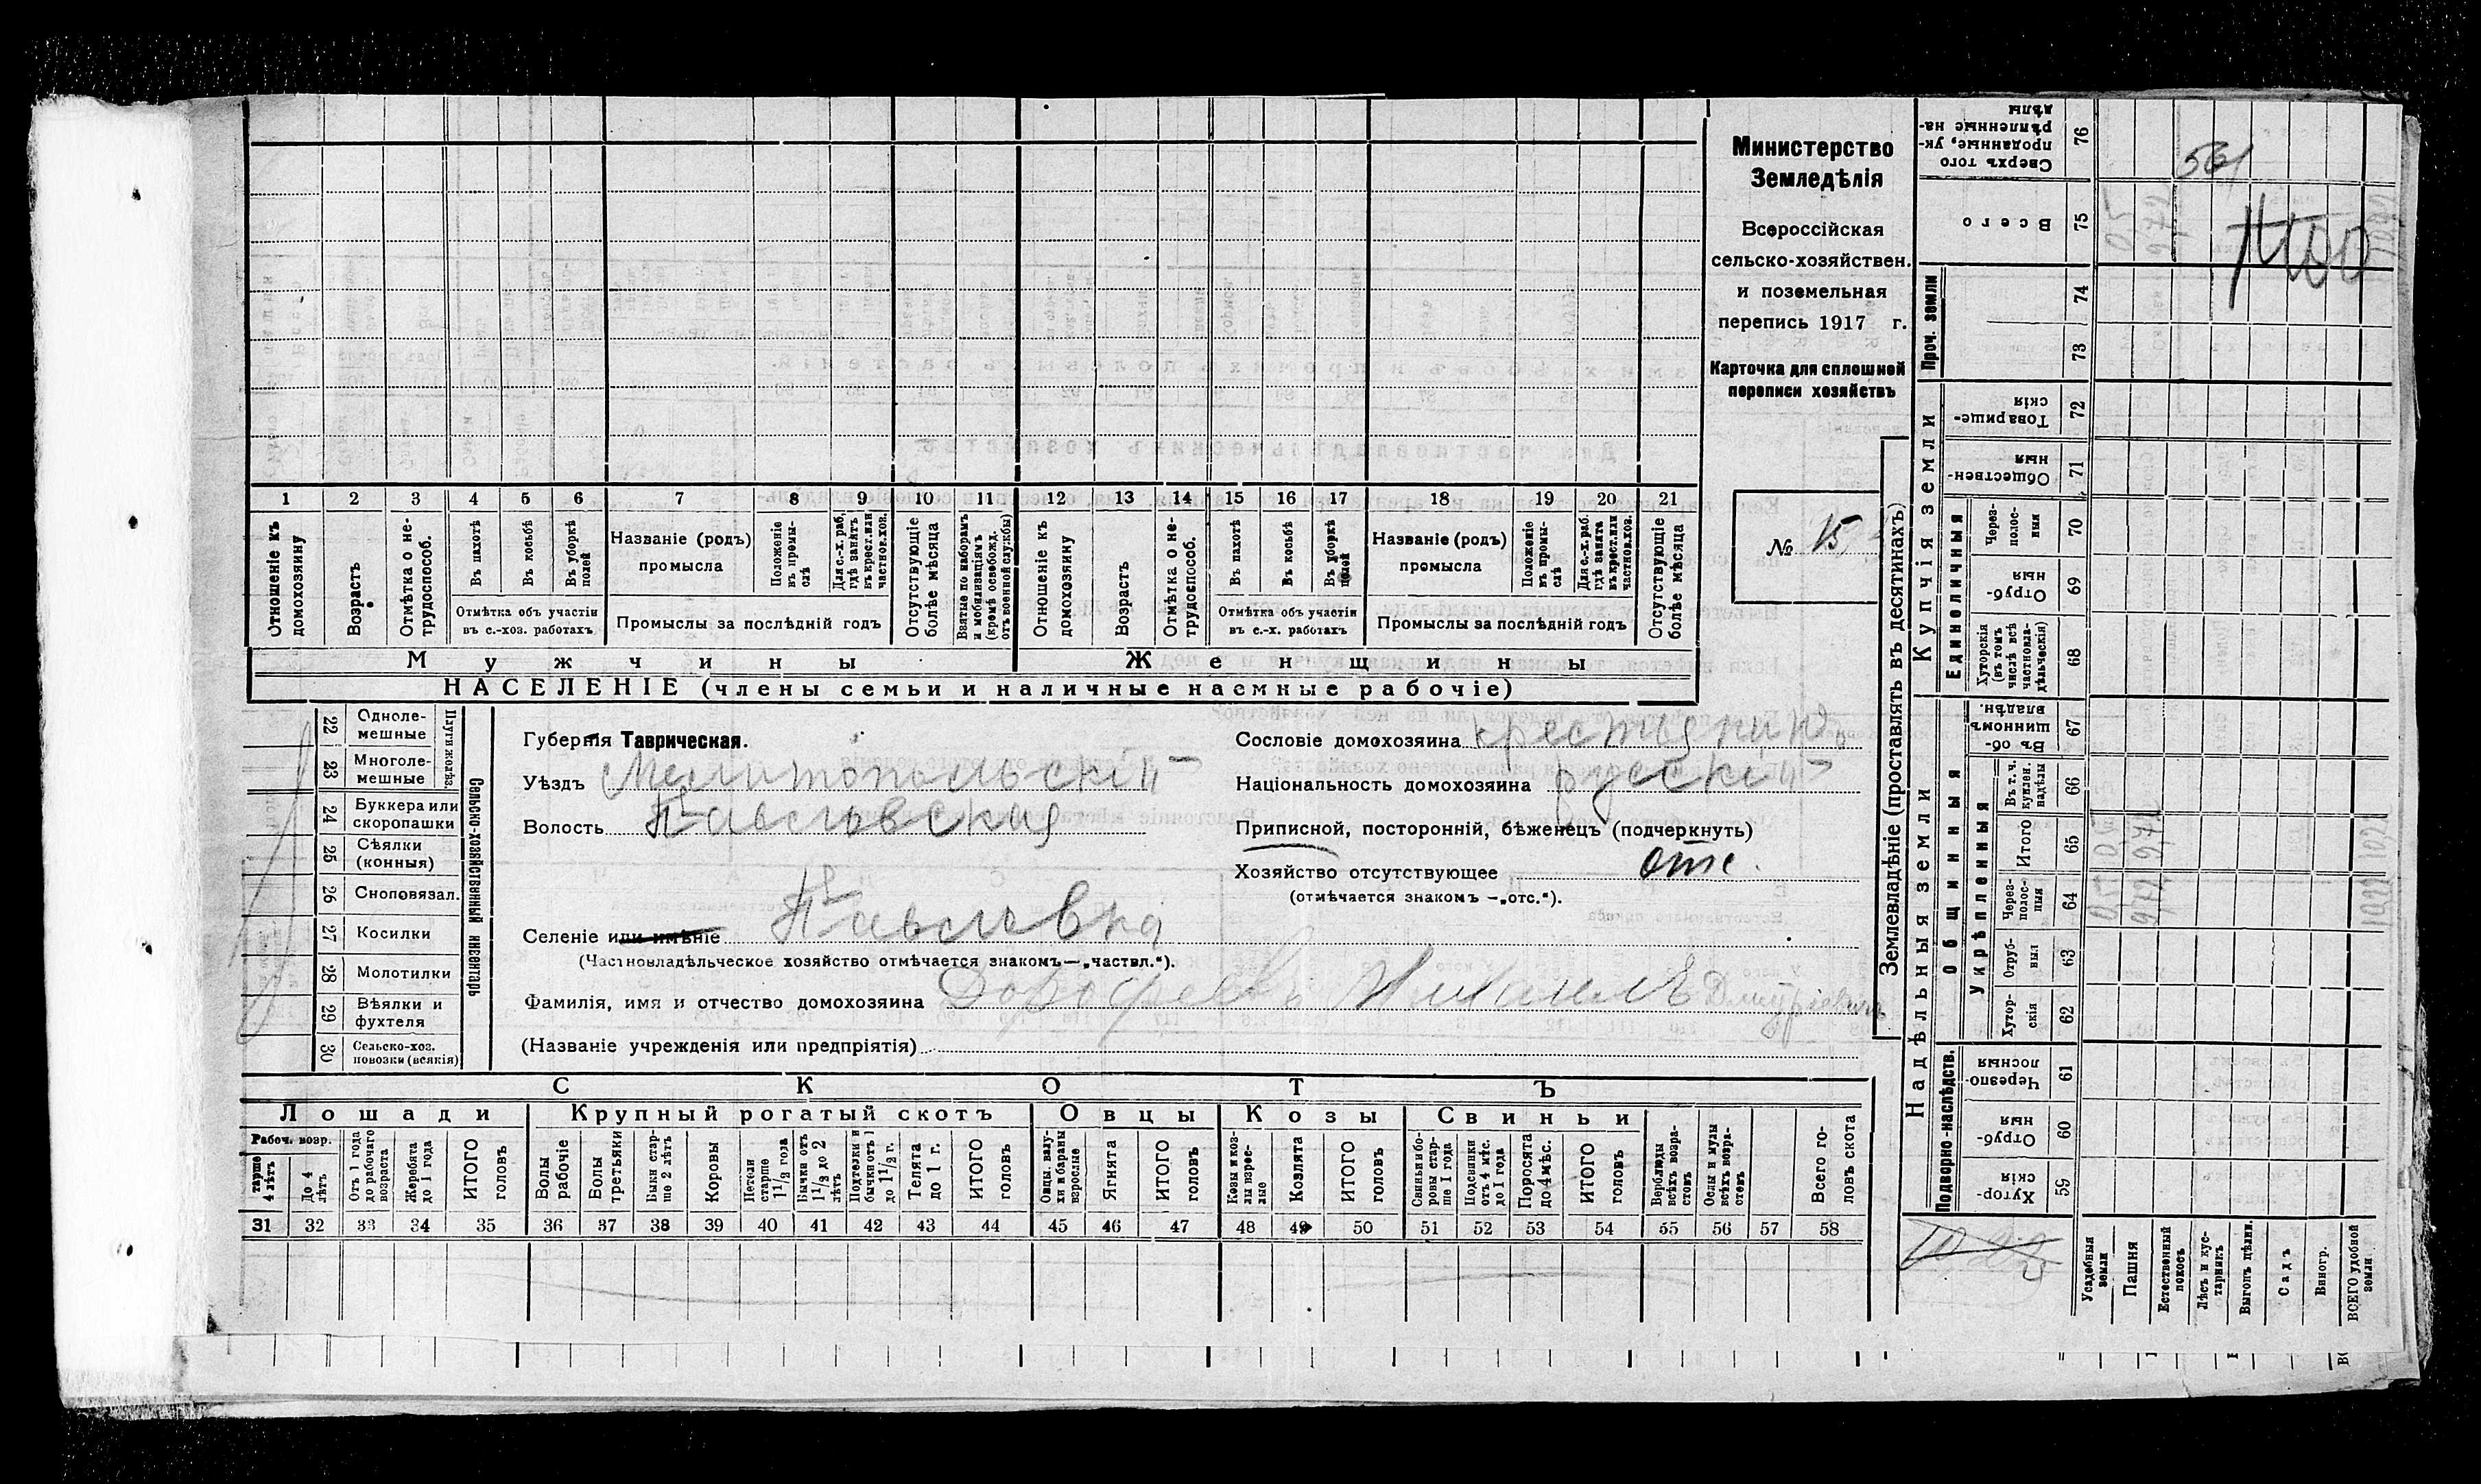 1 2 3 4 5 6 7 8 9 10 11 12 13 14 15 16 17 18 19 20 21
Отношеніе къ домохозяину
Возрастъ
Отмѣтка о не-трудоспособ.
Въ пахотѣ
Въ косьбѣ
Въ уборкѣ полей
Отмѣтка объ участіи
въ с.-хоз. работахъ
Названіе (родъ)
промысла
Положеніе въ промы-слѣ
Для с.-х. раб. гдѣ занятъ въ крест. или частнов. хоз.
Промыслы за послѣдній годъ
Отсутствующіе болѣе мѣсяца
Взятые по наборамъ и мобилизаціямъ (кромѣ освобожд. отъ военной службы)
Отношеніе къ домохозяину
Возрастъ
Отмѣтка о не-трудоспособ.
Въ пахотѣ
Въ косьбѣ
Въ уборкѣ полей
Отмѣтка объ участіи
въ с.-х. работахъ
Названіе (родъ)
промысла
Положеніе въ промы-слѣ
Для с.-х. раб. гдѣ занята въ крест. или частнов. хоз.
Промыслы за послѣдній годъ
Отсутствующіе болѣе мѣсяца
Мужчины
Женщины
НАСЕЛЕНІЕ (члены семьи и наличные наемные рабочіе)
Министерство
Земледѣлія
Всероссійская
сельско-хозяйствен.
и поземельная
перепись 1917 г.
Карточка для сплошной
переписи хозяйствъ
№ 15
22 Одноле-мешные
23 Многоле-мешные
24 Буккера или скоропашки
25 Сѣялки (конныя)
26 Сноповязал.
27 Косилки
28 Молотилки
29 Вѣялки и фухтеля
30 Сельско-хоз. повозки (всякія)
Сельско-хозяйственный инвентарь
Губернія Таврическая.
Уѣздъ Мелитопольскій
Волость Павловская
Селеніе или имѣніе Павловка
(Частновладѣльческое хозяйство отмѣчается знакомъ—„частвл.“).
Фамилія, имя и отчество домохозяина Дорофеевъ Михаилъ Дмитріевичъ
(Названіе учрежденія или предпріятія)
Сословіе домохозяина крестьянинъ
Національность домохозяина русскій
Приписной, посторонній, бѣженецъ (подчеркнуть)
Хозяйство отсутствующее отс.
(отмѣчается знакомъ —„отс.“).
СКОТЪ
Лошади
Крупный рогатый скотъ
Овцы
Козы
Свиньи
Рабоч. возр.
тарше 4 лѣтъ
До 4 лѣтъ
Отъ 1 года до рабочаго возраста
Жеребята до 1 года
ИТОГО головъ
Волы рабочіе
Волы третьяки
Быки стар-ше 2 лѣтъ
Коровы
Нетели старше 1½ года
Бычки отъ 1½ до 2 лѣтъ
Подтелки и бычки отъ 1 до 1½ г.
Телята до 1 г.
ИТОГО головъ
Овцы, валу-хи и бараны взрослые
Ягнята
ИТОГО головъ
Козы и коз-лы взрос-лые
Козлята
ИТОГО головъ
Свиньи и бо-ровы стар-ше 1 года
Подсвинки отъ 4 мѣс. до 1 года
Поросята до 4 мѣс.
ИТОГО головъ
Верблюды всѣхъ возра-стовъ
Ослы и мулы всѣхъ возра-стовъ
Всего го-ловъ скота
31 32 33 34 35 36 37 38 39 40 41 42 43 44 45 46 47 48 49 50 51 52 53 54 55 56 57 58
Землевладѣніе (проставлять въ десятинахъ)
Надѣльныя земли
Купчія земли
Проч. земли
Подворно-наслѣдств.
Общинныя
Укрѣпленныя
Единоличныя
Сверхъ того проданные, ук-рѣпленные на-дѣлы 76
Всего 75
74
73
Товарище-скія 72
Обществен-ныя 71
Через-полос-ныя 70
Отруб-ныя 69
Хуторскія (въ томъ числѣ всѣ частновла-дѣльческія) 68
Въ об-щинномъ владѣн. 67
Въ т. ч. куплен. надѣлы 66
Итого 65
Через-полос-ныя 64
Отруб-ныя 63
Хутор-скія 62
Черезпо-лосныя 61
Отруб-ныя 60
Хутор-скія 59
Усадебныя земли
Пашня
Естественный покосъ
Лѣсъ и кус-тарникъ
Выгонъ цѣлин.
Садъ
Виногр.
ВСЕГО удобной земли
05
972